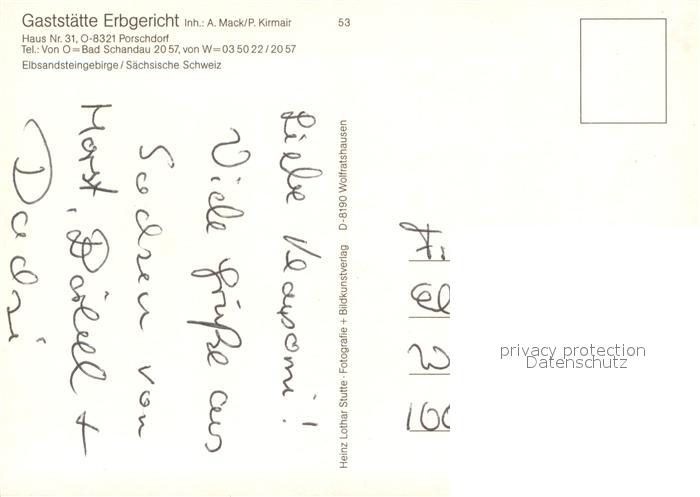 Gaststätte Erbgericht Inh.: A. Mack/P. Kirmair
Haus Nr. 31, O-8321 Porschdorf
Tel.: Von O=Bad Schandau 20 57, von W=03 50 22 / 20 57
Elbsandsteingebirge / Sächsische Schweiz
53
Liebe
Viele Grüße aus
Sachsen von
Horst, +
Heinz Lothar Stutte · Fotografie + Bildkunstverlag D-8190 Wolfratshausen
privacy protection
Datenschutz